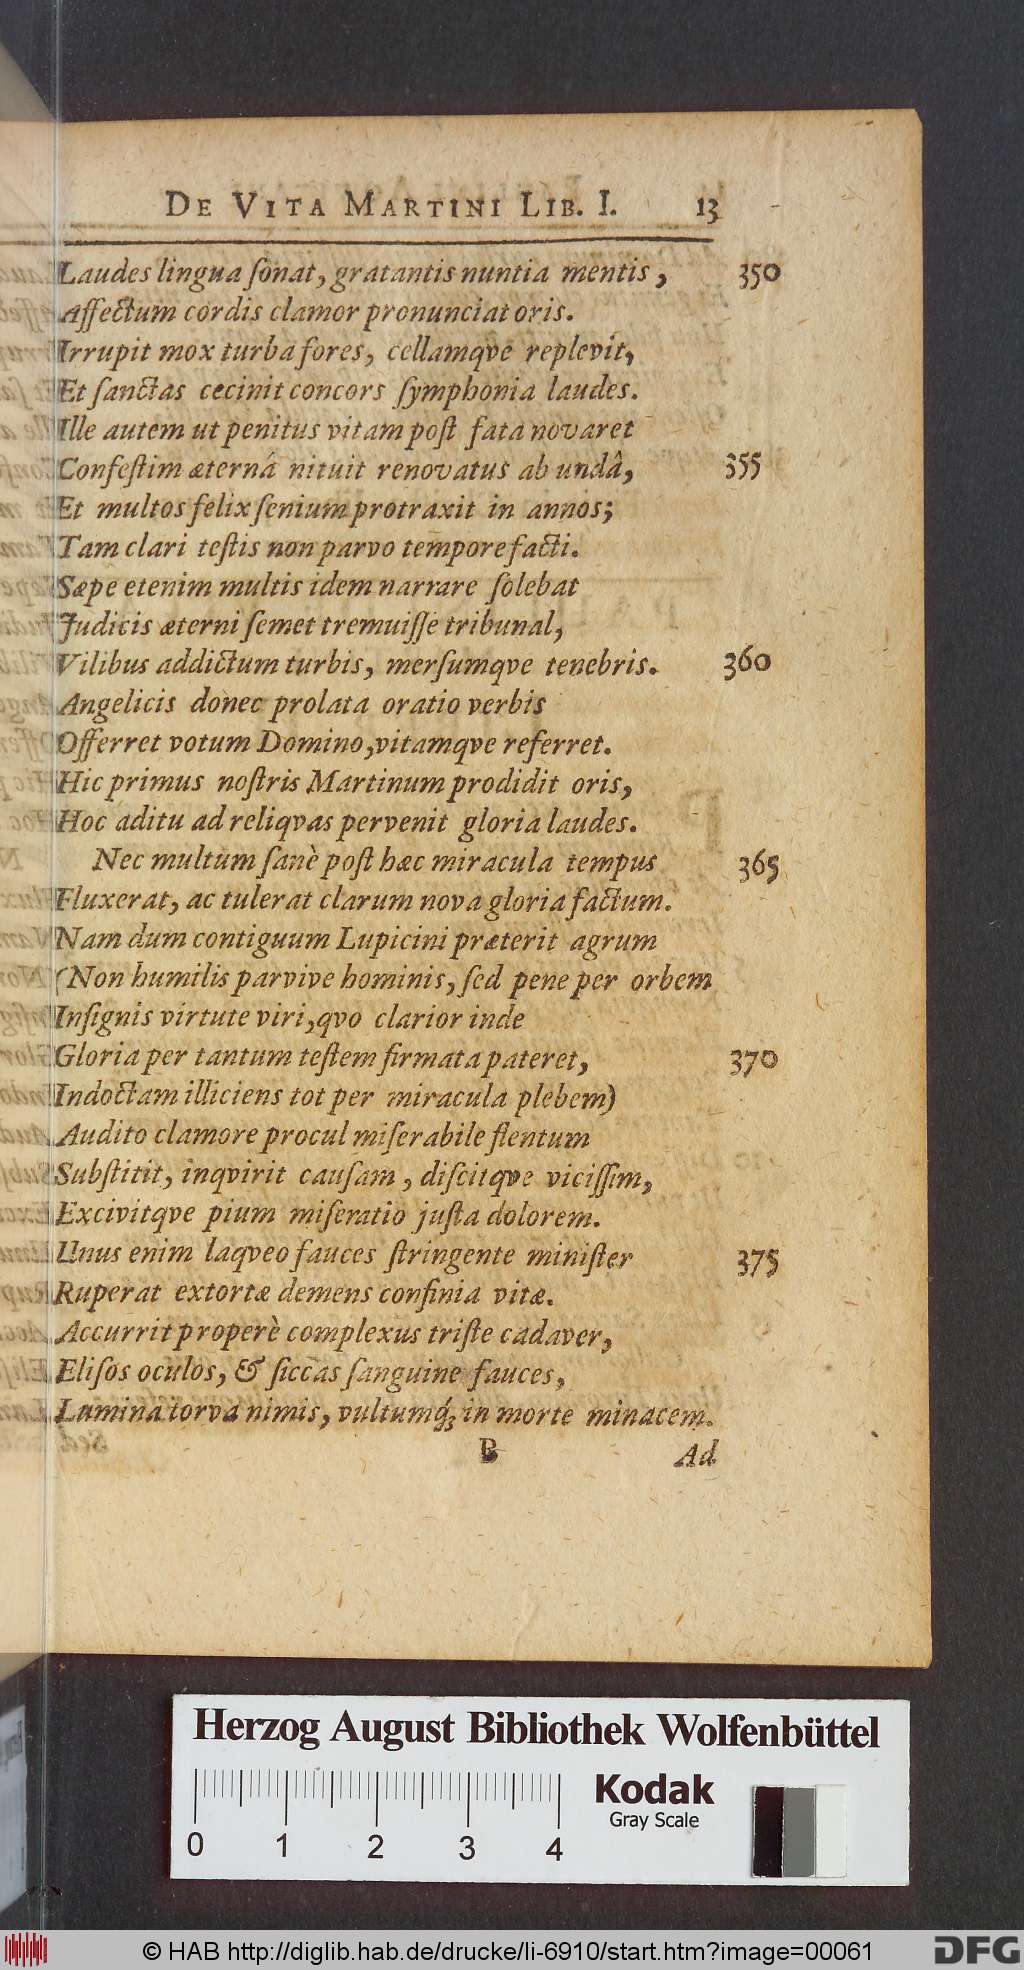 DE VITA MARTINI LIB. I. 13
Laudes lingua ſonat, gratantis nuntia mentis, 350
Affectum cordis clamor pronunciat oris.
Irrupit mox turba fores, cellamqve replevit,
Et ſanctas cecinit concors ſymphonia laudes.
Ille autem ut penitus vitam poſt fata novaret
Confeſtim æterná nituit renovatus ab undâ, 355
Et multos felix ſenium protraxit in annos;
Tam clari teſtis non parvo tempore facti.
Sæpe etenim multis idem narrare ſolebat
Judicis æterni ſemet tremuiſſe tribunal,
Vilibus addictum turbis, merſumqve tenebris. 360
Angelicis donec prolata oratio verbis
Offerret votum Domino, vitamqve referret.
Hic primus noſtris Martinum prodidit oris,
Hoc aditu ad reliqvas pervenit gloria laudes.
Nec multum ſanè poſt hæc miracula tempus 365
Fluxerat, ac tulerat clarum nova gloria factum.
Nam dum contiguum Lupicini præterit agrum
(Non humilis parvive hominis, ſed pene per orbem
Inſignis virtute viri, qvo clarior inde
Gloria per tantum teſtem firmata pateret, 370
Indoctam illiciens tot per miracula plebem)
Audito clamore procul miſerabile flentum
Subſtitit, inqvirit cauſam, diſcitqve viciſſim,
Excivitqve pium miſeratio juſta dolorem.
Unus enim laqveo fauces ſtringente miniſter 375
Ruperat extortæ demens confinia vitæ.
Accurrit properè complexus triſte cadaver,
Eliſos oculos, & ſiccas ſanguine fauces,
Lumina torva nimis, vultumq́; in morte minacem.
B Ad
Herzog August Bibliothek Wolfenbüttel
0 1 2 3 4
Kodak
Gray Scale
© HAB http://diglib.hab.de/drucke/li-6910/start.htm?image=00061
DFG